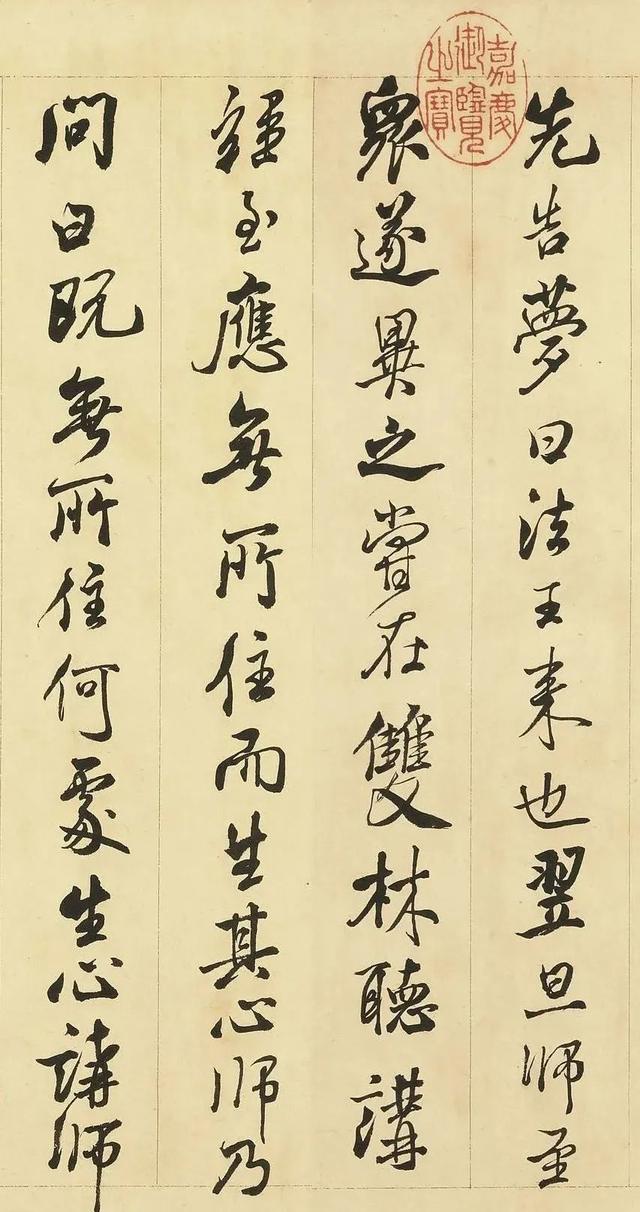 先告夢曰法王来也翌旦师至
衆遂異之嘗在雙林聽講
經至應無所住而生其心师乃
問曰既無所住何處生心講师
嘉慶御覽之寶